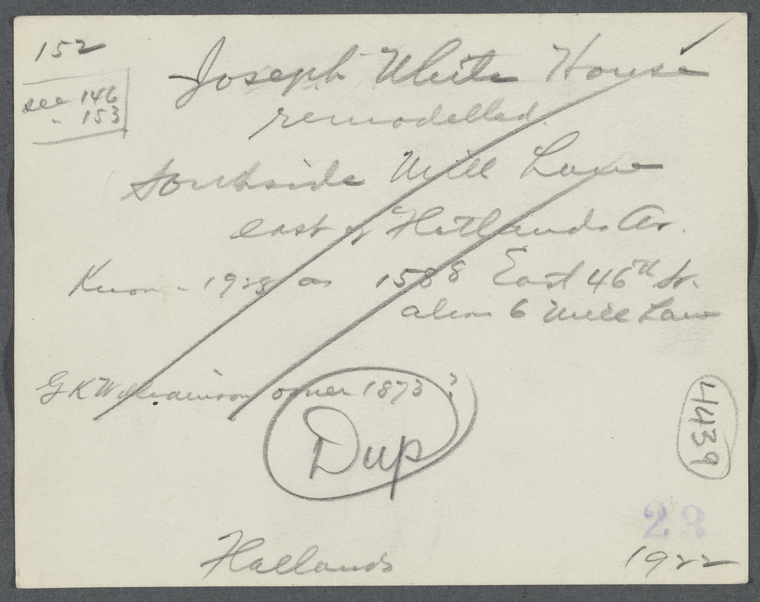 152
see 146
" 153
Joseph White House
remodelled.
Southside Mill Lane
east of Flatlands Av.
Known - 1928 as 1588 East 46th St.
also 6 Mill Lane
G K Williamson owner 1873 ?
Dup
4439
23
Flatlands
1922